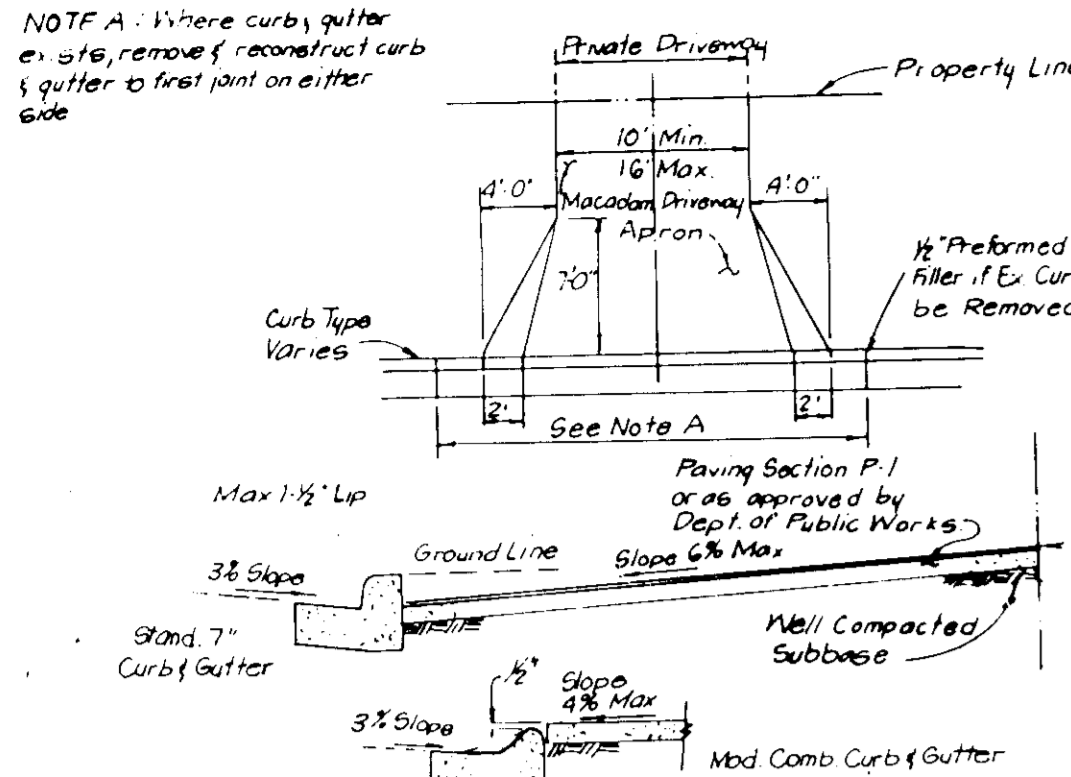 NOTE A : Where curb & gutter
exists, remove & reconstruct curb
& gutter to first joint on either
side
Private Driveway
Property Line
10' Min.
16' Max.
4'-0"
4'-0"
Macadam Driveway
Apron
7'-0"
1/2" Preformed
Filler if Ex. Cur
be Removed
Curb Type
Varies
2'
2'
See Note A
Paving Section P-1
or as approved by
Dept. of Public Works
Max 1-1/2" Lip
Ground Line
Slope 6% Max
3% Slope
Stand. 7"
Curb & Gutter
Well Compacted
Subbase
1/2"
Slope
4% Max
3% Slope
Mod. Comb. Curb & Gutter